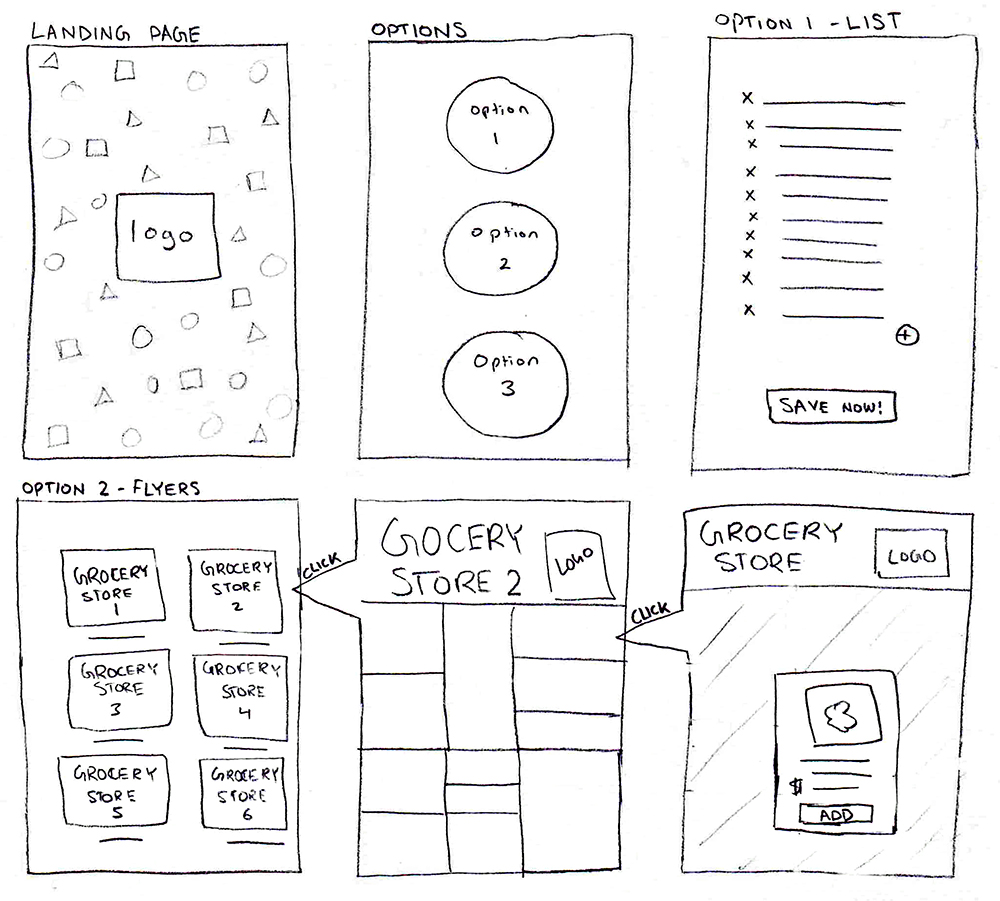 LANDING PAGE
logo
OPTIONS
Option
1
Option
2
Option
3
OPTION 1 - LIST
x
x
x
x
x
x
x
x
x
x
+
SAVE NOW!
OPTION 2 - FLYERS
GROCERY
STORE
1
GROCERY
STORE
2
GROCERY
STORE
3
GROCERY
STORE
4
GROCERY
STORE
5
GROCERY
STORE
6
CLICK
GOCERY
STORE 2
LOGO
CLICK
GROCERY
STORE
LOGO
$
ADD